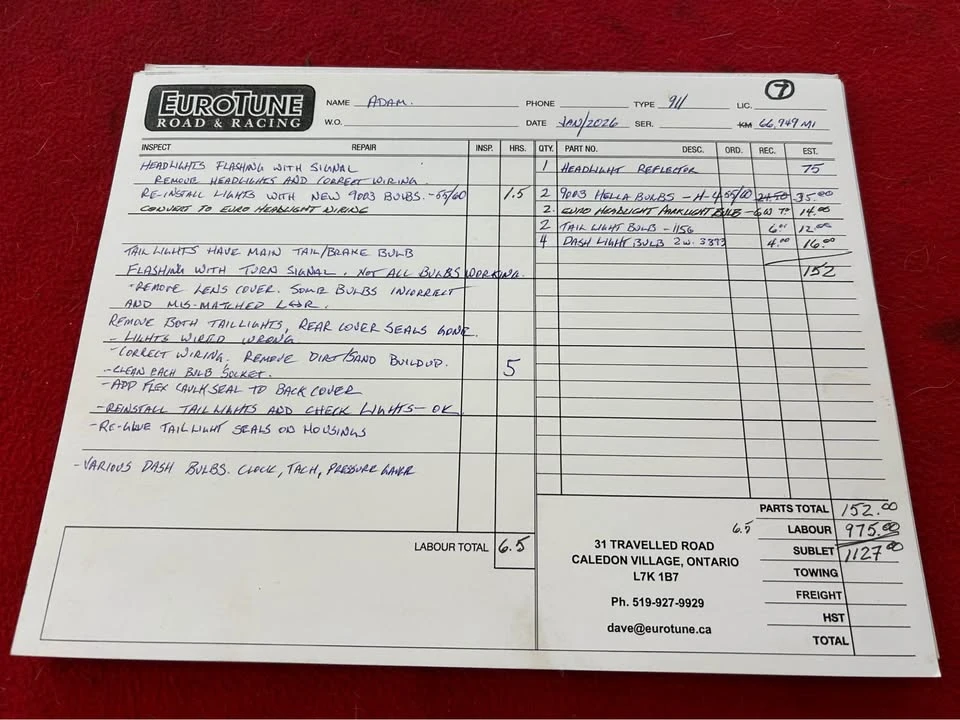 EUROTUNE
ROAD & RACING
NAME ADAM. PHONE TYPE 911 LIC. 7
W.O. DATE JAN/2026 SER. KM 66,949 MI
INSPECT REPAIR INSP. HRS. QTY. PART NO. DESC. ORD. REC. EST.
HEADLIGHTS FLASHING WITH SIGNAL 1 HEADLIGHT REFLECTOR 75
REMOVE HEADLIGHTS AND CORRECT WIRING.
RE-INSTALL LIGHTS WITH NEW 9003 BULBS. -55/60 1.5 2 9003 HELLA BULBS - H-4 55/60 35.00
CONVERT TO EURO HEADLIGHT WIRING 2. EURO HEADLIGHT PARKLIGHT BULB - 14.00
2 TAIL LIGHT BULB - 1156 12.00
TAIL LIGHTS HAVE MAIN TAIL/BRAKE BULB 4 DASH LIGHT BULB 2W. 4.00 16.00
FLASHING WITH TURN SIGNAL. NOT ALL BULBS WORKING. 152
- REMOVE LENS COVER. SOME BULBS INCORRECT
AND MIS-MATCHED L&R.
REMOVE BOTH TAILLIGHTS, REAR COVER SEALS GONE.
- LIGHTS WIRED WRONG
- CORRECT WIRING. REMOVE DIRT/SAND BUILDUP. 5
- CLEAN EACH BULB SOCKET.
- ADD FLEX CAULK SEAL TO BACK COVER
- REINSTALL TAIL LIGHTS AND CHECK LIGHTS - OK
- RE-GLUE TAILLIGHT SEALS ON HOUSINGS
- VARIOUS DASH BULBS. CLOCK, TACH, PRESSURE GAUGE
LABOUR TOTAL 6.5
31 TRAVELLED ROAD
CALEDON VILLAGE, ONTARIO
L7K 1B7
Ph. 519-927-9929
dave@eurotune.ca
PARTS TOTAL 152.00
6.5 LABOUR 975.00
SUBLET 1127.00
TOWING
FREIGHT
HST
TOTAL